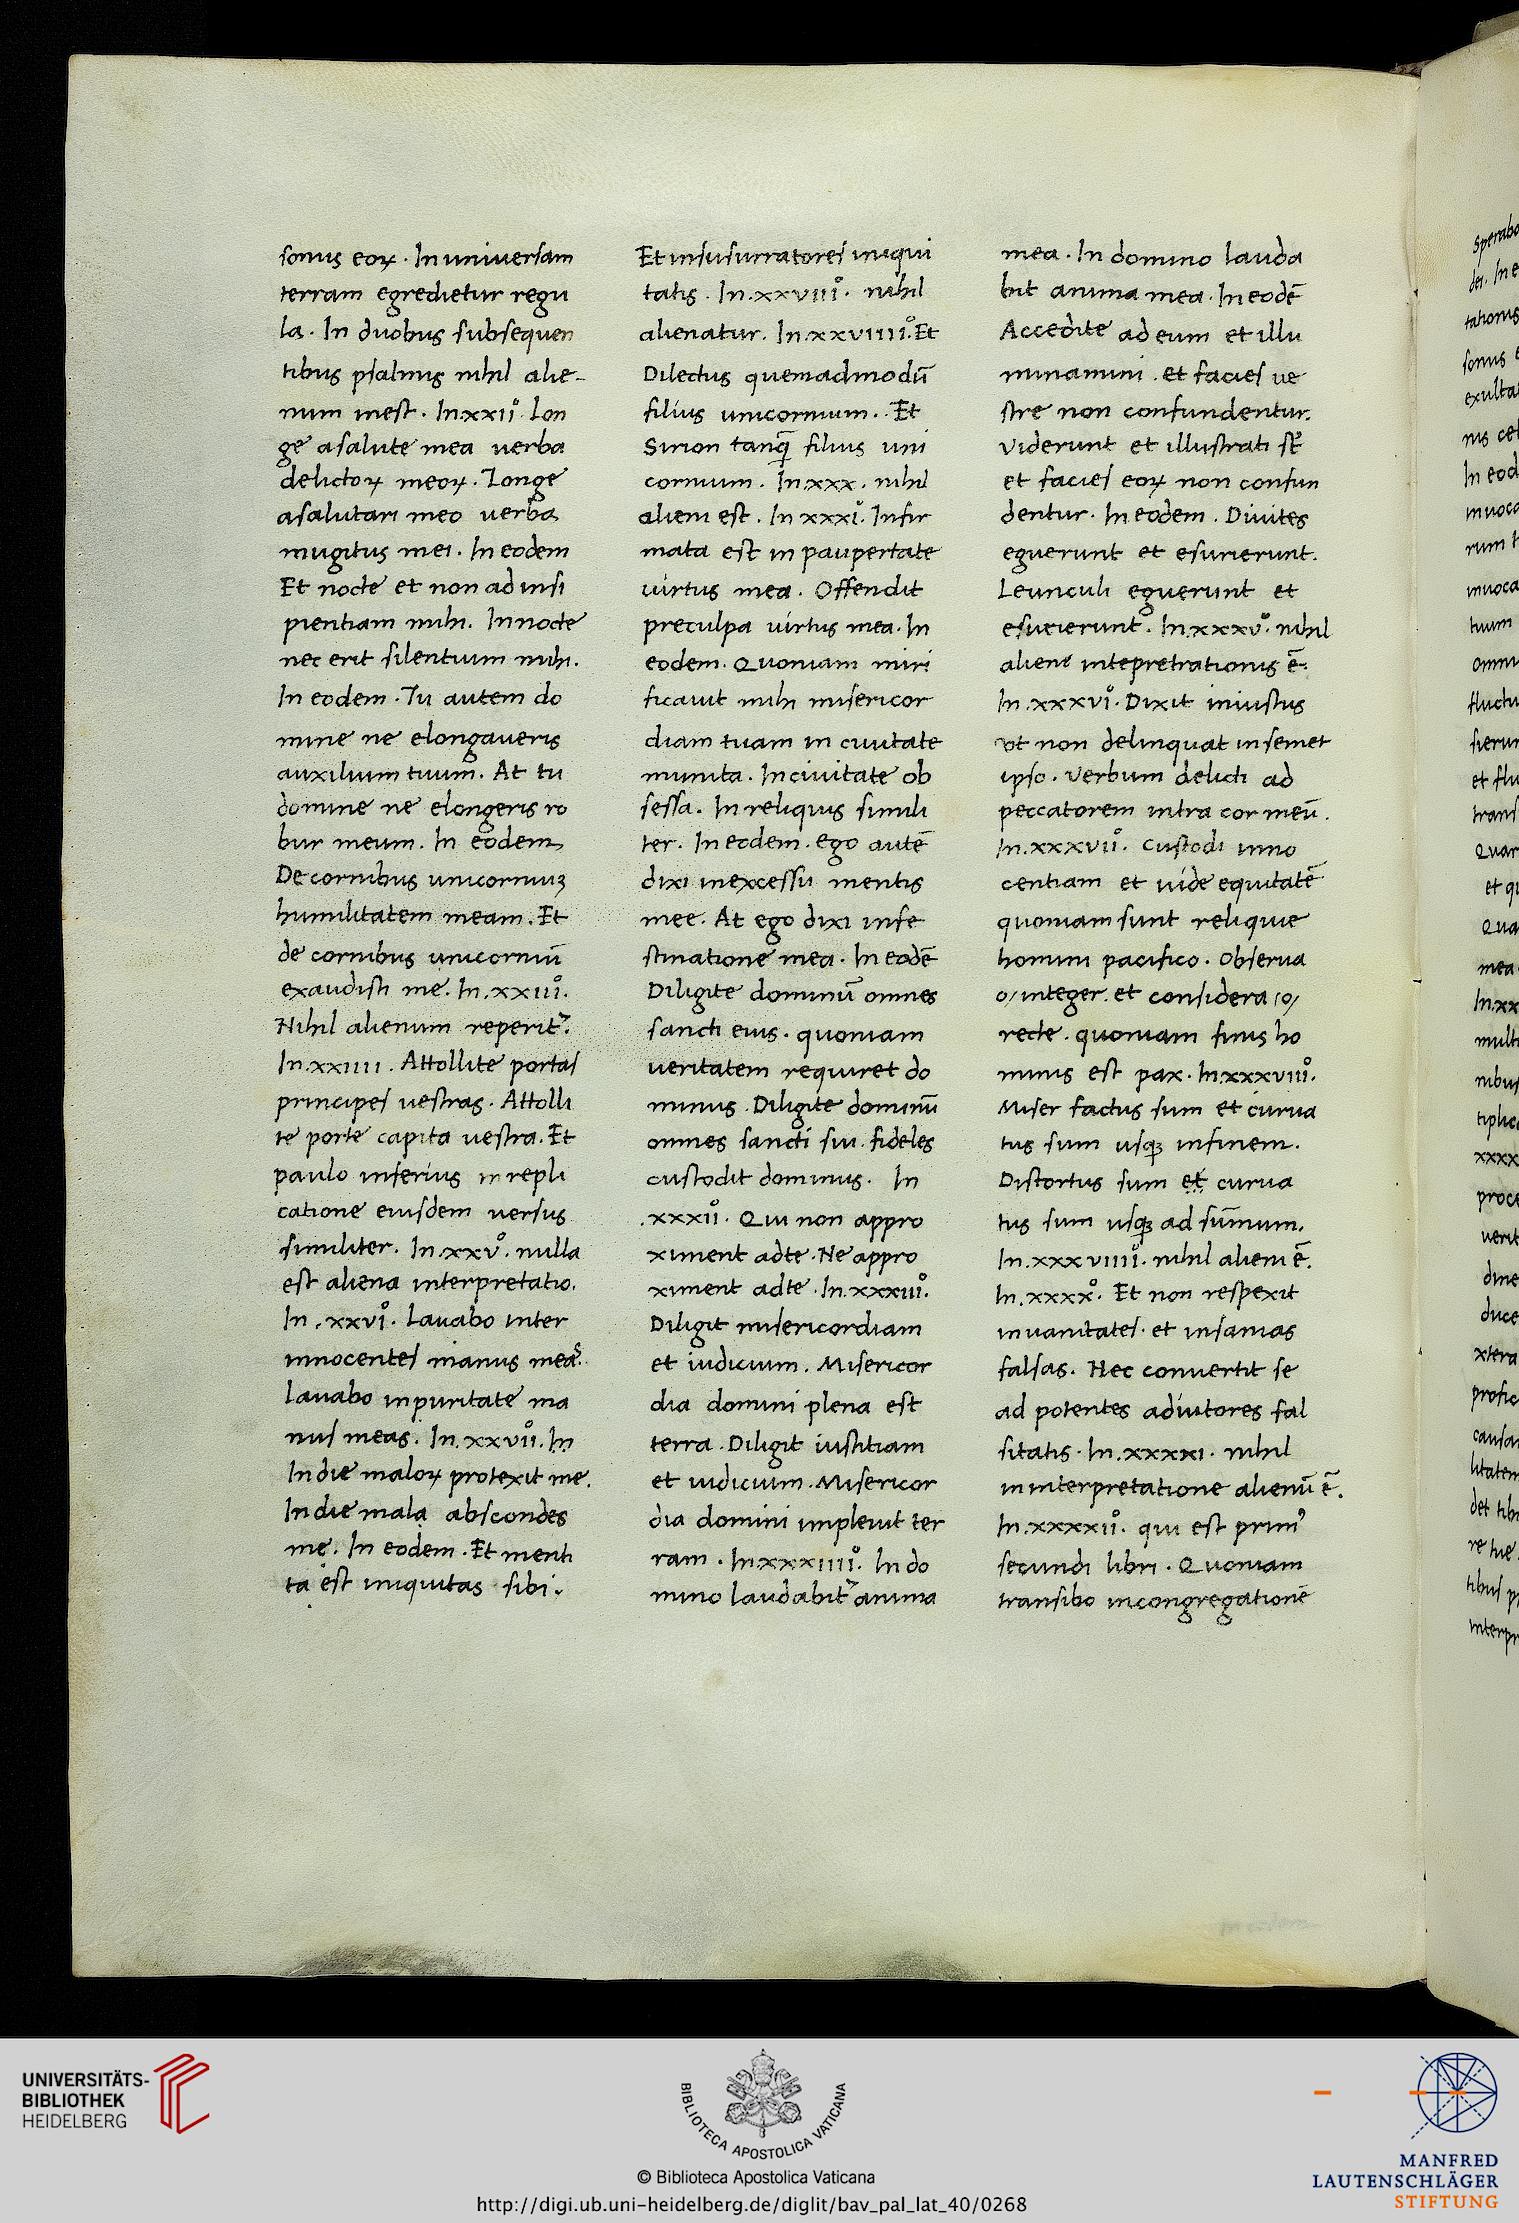 sonus eoꝝ. In universam
terram egredietur regu
la. In duobus subsequen
tibus psalmis nihil alie-
num inest. In xxii°. Lon
ge a salute mea verba
delictoꝝ meoꝝ. Longe
a salutari meo verba
mugitus mei. In eodem
Et nocte et non ad insi
pientiam mihi. In nocte
nec erit silentium mihi.
In eodem. Tu autem do
mine ne elongaueris
auxilium tuum. At tu
domine ne elongeris ro
bur meum. In eodem
De cornibus unicorniuꝫ
humilitatem meam. Et
de cornibus unicorniū
exaudisti me. In .xxiii°.
Nihil alienum reperit᷑.
In .xxiiii. Attollite portas
principes uestras. Attolli
te porte capita uestra. Et
paulo inferius in repli
catione eiusdem uersus
similiter. In .xxv°. nulla
est aliena interpretatio.
In .xxvi°. Lauabo inter
innocentes manus meas.
Lauabo in puritate ma
nus meas. In .xxvii°. In
In die maloꝝ protexit me.
In die mala abscondes
me. In eodem. Et menti
ta est iniquitas sibi.
Et insusurratores iniqui
tatis. In .xxviii°. nihil
alienatur. In .xxviiii°. Et
Dilectus quemadmodū
filius unicornium. Et
Sirion tanq̄ filius uni
cornium. In .xxx. nihil
alieni est. In xxxi°. Infir
mata est in paupertate
uirtus mea. Offendit
pre culpa uirtus mea. In
eodem. Quoniam miri
ficauit mihi misericor
diam tuam in ciuitate
munita. In ciuitate ob
sessa. In reliquis simili
ter. In eodem. ego autē
dixi in excessu mentis
mee. At ego dixi in fe
stinatione mea. In eodē
Diligite dominū omnes
sancti eius. quoniam
ueritatem requiret do
minus. Diligite dominū
omnes sancti sui. fideles
custodit dominus. In
.xxxii°. Qui non appro
ximent ad te. Ne appro
ximent ad te. In .xxxiii°.
Diligit misericordiam
et iudicium. Misericor
dia domini plena est
terra. Diligit iustitiam
et iudicium. Misericor
dia domini impleuit ter
ram. In .xxxiiii°. In do
mino laudabit᷑ anima
mea. In domino lauda
bit anima mea. In eodē
Accedite ad eum et illu
minamini. et facies ue
stre non confundentur.
Viderunt et illustrati st̄
et facies eoꝝ non confun
dentur. In eodem. Diuites
eguerunt et esurierunt.
Leunculi eguerunt et
esurierunt. In .xxxv°. nihil
aliene intepretrationis ē.
In .xxxvi°. Dixit iniustus
ut non delinquat in semet
ipso. Verbum delicti ad
peccatorem intra cor meū.
In .xxxvii°. Custodi inno
centiam et uide equitatē
quoniam sunt reliquie
homini pacifico. Obserua
o/ integer. et considera /o/
recte. quoniam finis ho
minis est pax. In .xxxviii°.
Miser factus sum et curua
tus sum usqꝫ in finem.
Distortus sum et curua
tus sum usqꝫ ad sūmum.
In .xxxviiii°. nihil alieni ē.
In .xxxx°. Et non respexit
in uanitates. et insanias
falsas. Nec conuertit se
ad potentes adiutores fal
sitatis. In .xxxxi. nihil
in interpretatione alienū ē.
In .xxxxii°. qui est primꝰ
secundi libri. Quoniam
transibo in congregationē
UNIVERSITÄTS-
BIBLIOTHEK
HEIDELBERG
BIBLIOTECA APOSTOLICA VATICANA
© Biblioteca Apostolica Vaticana
http://digi.ub.uni-heidelberg.de/diglit/bav_pal_lat_40/0268
MANFRED
LAUTENSCHLÄGER
STIFTUNG